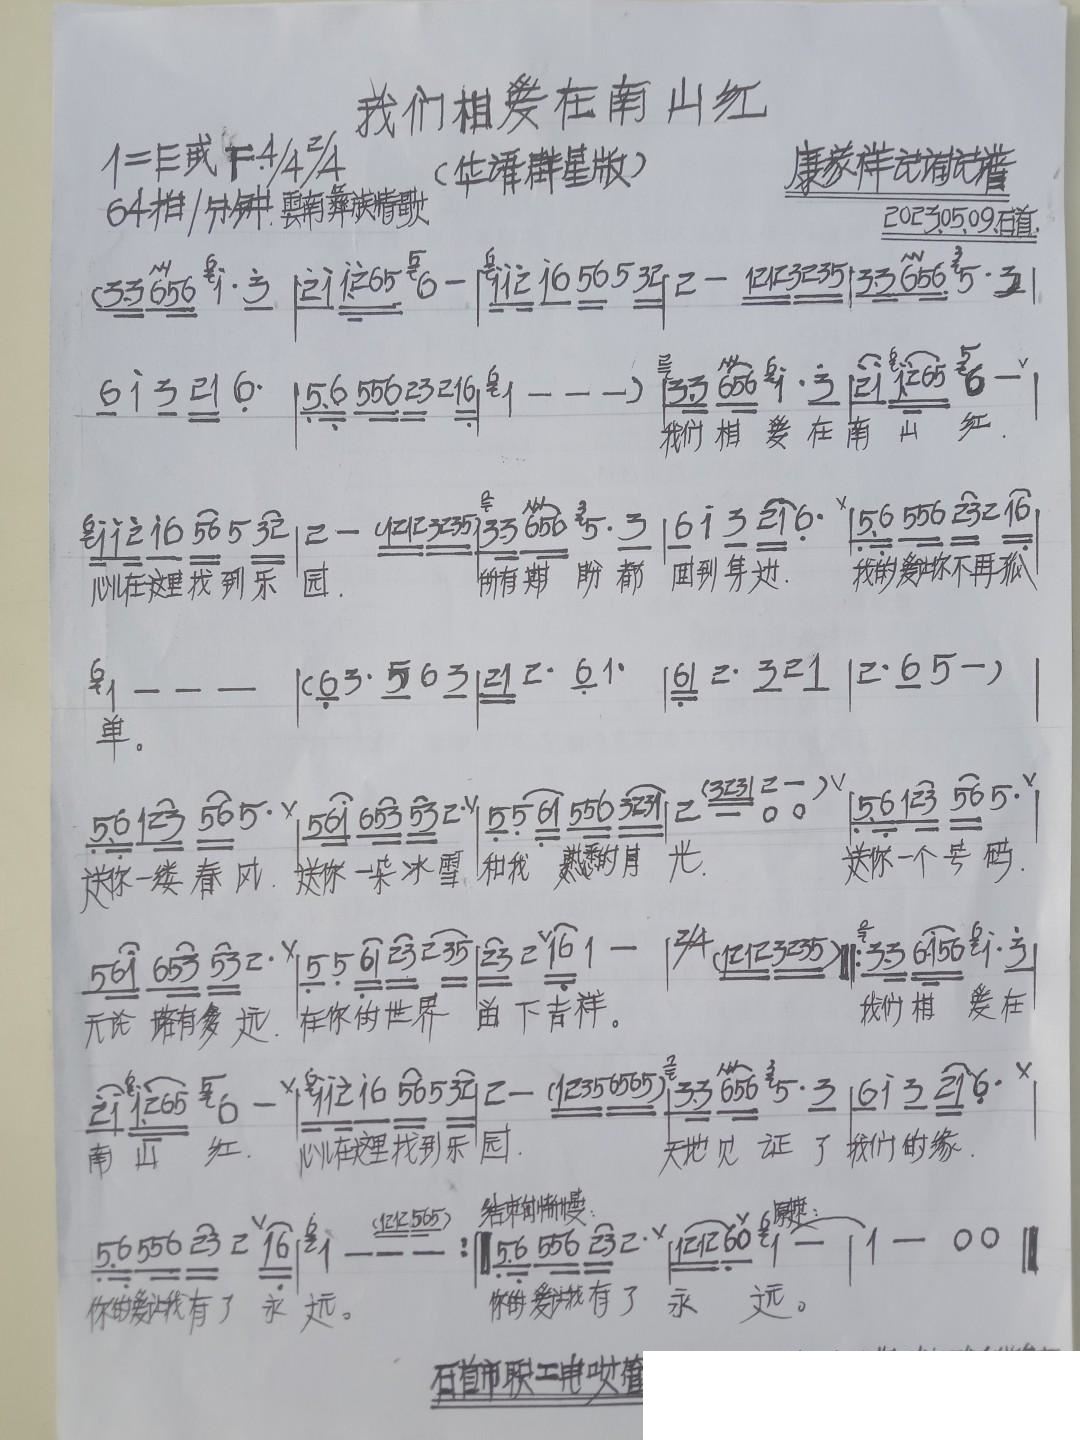 我们相爱在南山红
1=E或F 4/4 2/4
(华语群星版)
康家祥记词记谱
64拍/分钟.雲南彝族情歌
2023.05.09.石首.
(3.3 656 6 i · 3 | 2i i265 5 6 - | 6 ii2 i6 56 5 32 | 2 - 1212 3235 | 3.3 656 3 5 · 3 |
6 i 3 21 6· | 5.6 556 23 216 | 6 1 - - - ) | 3.3 656 6 i · 3 | 2i 6 i265 5 6 - ∨ |
我们 相 爱 在 南 山 红.
6 ii2 i6 56 5 32 | 2 - (1212 3235 | 2 3.3 656 3 5 · 3 | 6 i 3 21 6· ∨ | 5.6 556 23 2 16 |
心儿在这里 找 到 乐 园. 所有 期 盼 都 回到 身 边. 我的 爱让你 不 再 孤
6 1 - - - | (6 3· 5 6 3 | 21 2· 6 1· | 61 2· 3 21 | 2· 6 5 - ) |
单。
5.6 123 56 5· ∨ | 561 653 53 2· ∨ | 5 5 61 556 3231 | 2 (3231 2 - ) ∨ | 5.6 123 56 5· ∨ |
0 0
送你 一缕 春 风. 送你 一朵 冰 雪 和我 熟悉的 月 光. 送你 一个 号 码.
561 653 53 2· ∨ | 5 5 61 23 235 | 23 2 ∨ 16 1 - | 2/4 (1212 3235) ‖: 2 3.3 6·i56 6 i · 3 |
无论 拥有 多 远. 在你 的 世 界 留 下 吉 祥。 我们 相 爱 在
2i 6 i265 5 6 - ∨ | 6 ii2 i6 56 5 32 | 2 - (1235 6565) | 2 3.3 656 3 5 · 3 | 6 i 3 21 6· ∨ |
南 山 红. 心儿在这里 找到 乐 园. 天地 见 证 了 我们 的 缘.
结束句渐慢: 原速:
5.6 556 23 2 ∨ 16 | 6 1 - - - (1212 565) :‖ 5.6 556 23 2· ∨ | 1212 60 ∨ 6 1 - | 1 - 0 0 ‖
你的 爱让我 有 了 永 远。 你的 爱让我 有 了 永 远。
石首市职工电吹管